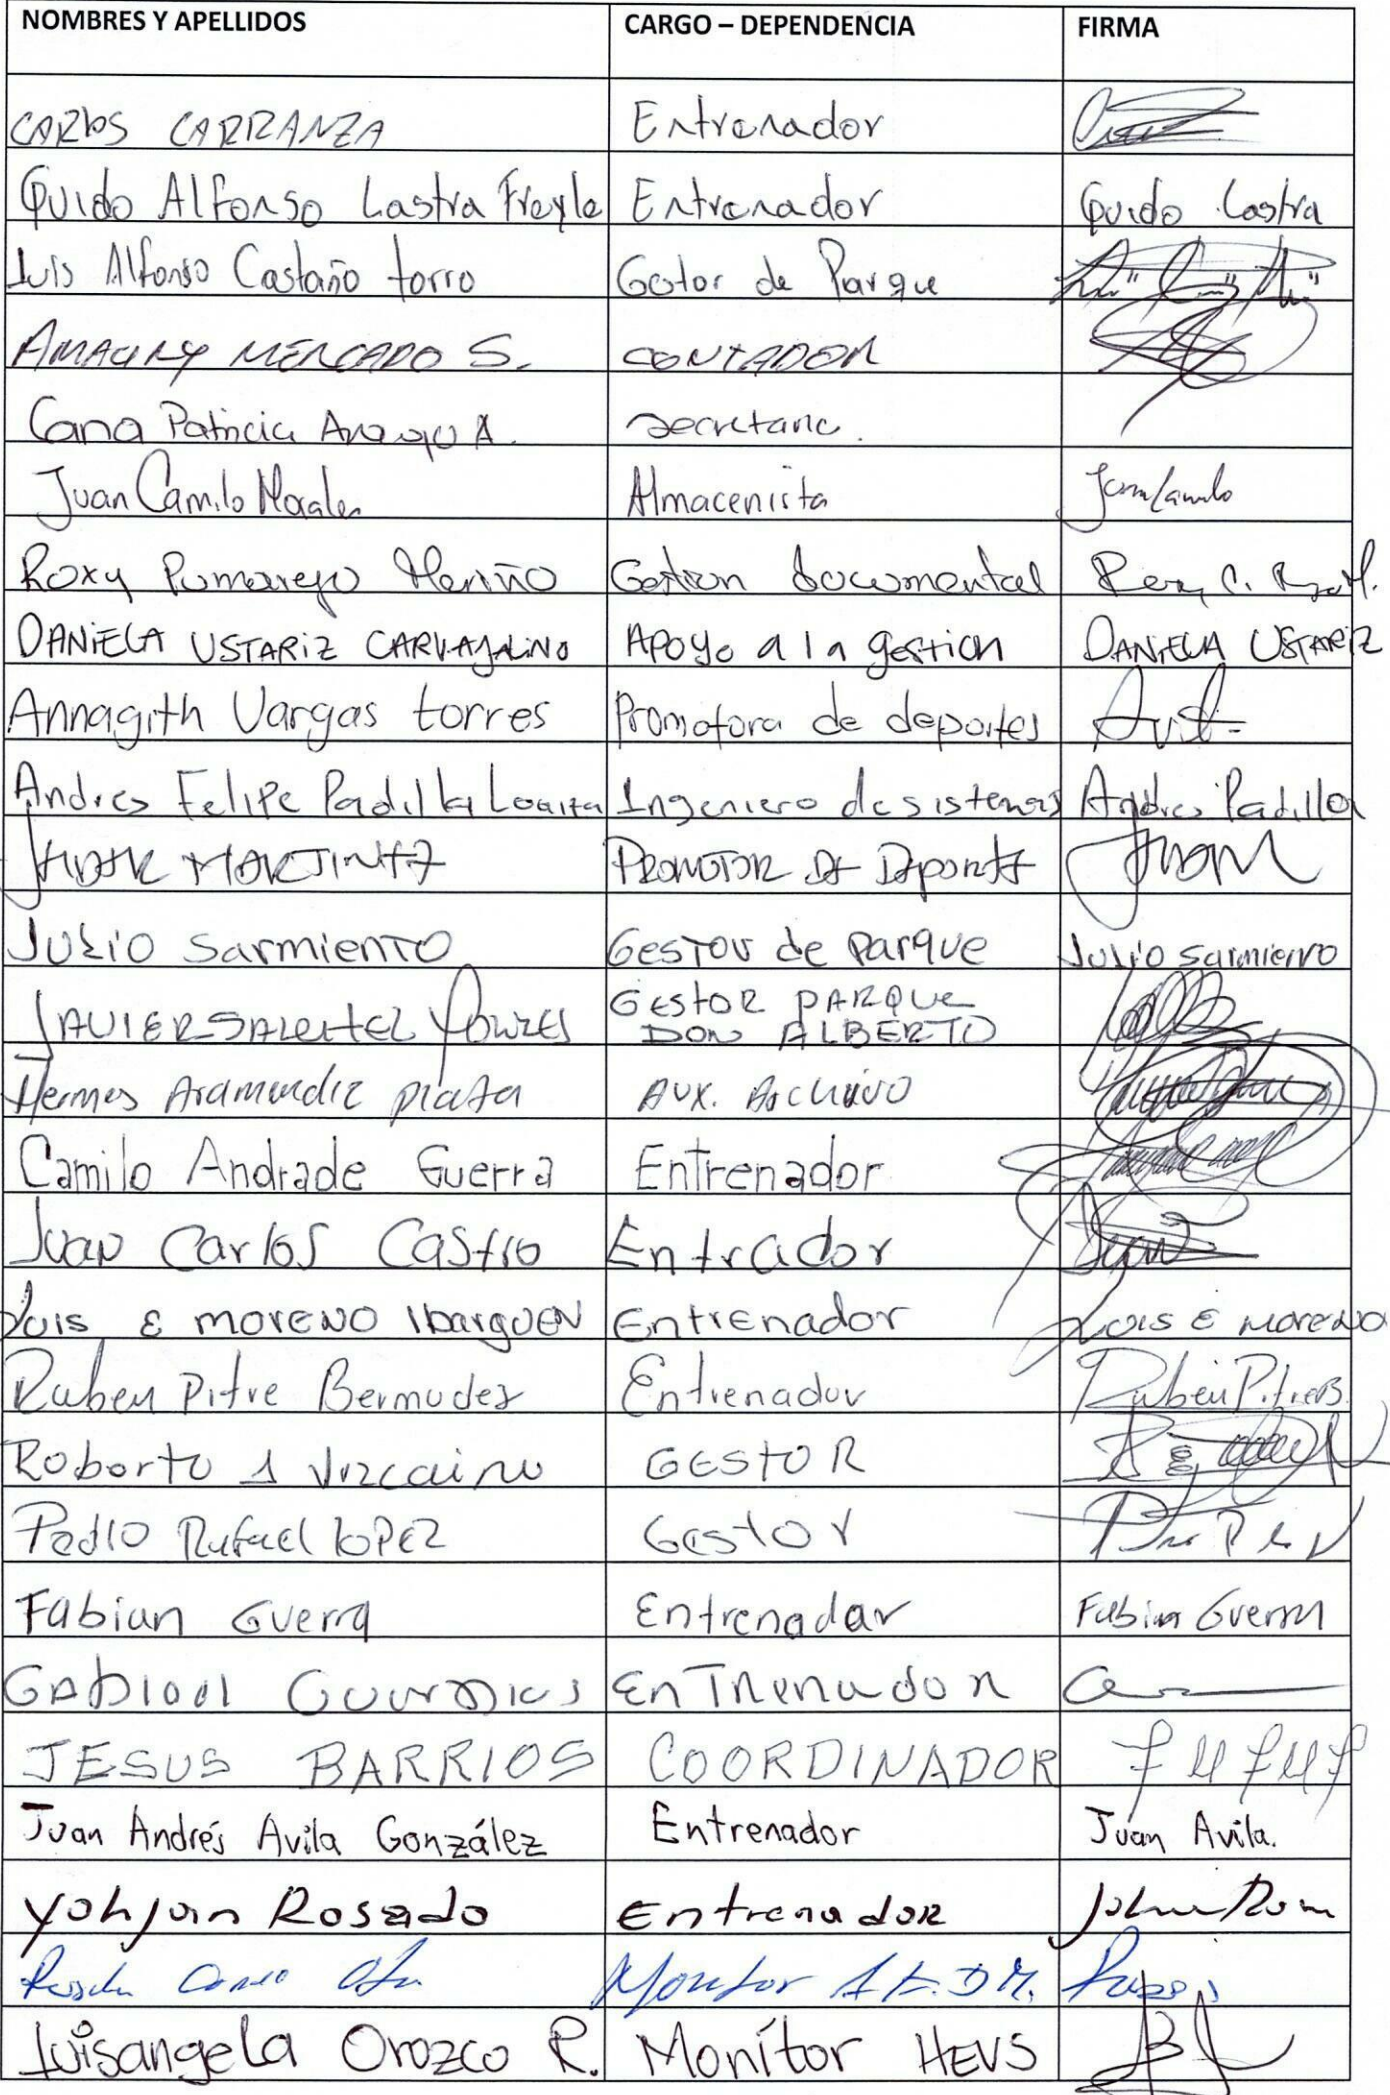 NOMBRES Y APELLIDOS CARGO – DEPENDENCIA FIRMA
CARlOS CARRANZA Entrenador
Guido Alfonso Lastra Freyle Entrenador Guido Lastra
Luis Alfonso Castaño torro Gotor de Parque
AMAURY MERCADO S. CONTADOR
Cana Patricia Araujo A. Secretaria.
Juan Camilo Morales Almacenista Juan Camilo
Roxy Pumarejo Meriño Gestion documental
DANIELA USTARIZ CARVAJALINO APOYO a la gestion DANIELA USTARIZ
Annagith Vargas torres Promotora de deportes
Andres Felipe Padilla Loaiza Ingeniero de sistemas Andres Padilla
MARTINEZ PROMOTOR DE Deporte
JULIO Sarmiento Gestor de Parque Julio Sarmiento
JAVIER GESTOR PARQUE
DON ALBERTO
Hermes Aramendiz plata AUX. Archivo
Camilo Andrade Guerra Entrenador
Juan Carlos Castro Entrador
Luis E moreno Ibarguen Entrenador Luis E moreno
Ruben Pitre Bermudez Entrenador Ruben Pitre B.
Roberto J Vizcaino GESTOR
Pedro Rafael LOPEZ Gestor
Fabian Guerra Entrenador Fabian Guerra
GABriel Entrenador
JESUS BARRIOS COORDINADOR
Juan Andrés Avila González Entrenador Juan Avila.
Yohjan Rosado Entrenador
Monitor
Luisangela Orozco R. Monítor HEVS